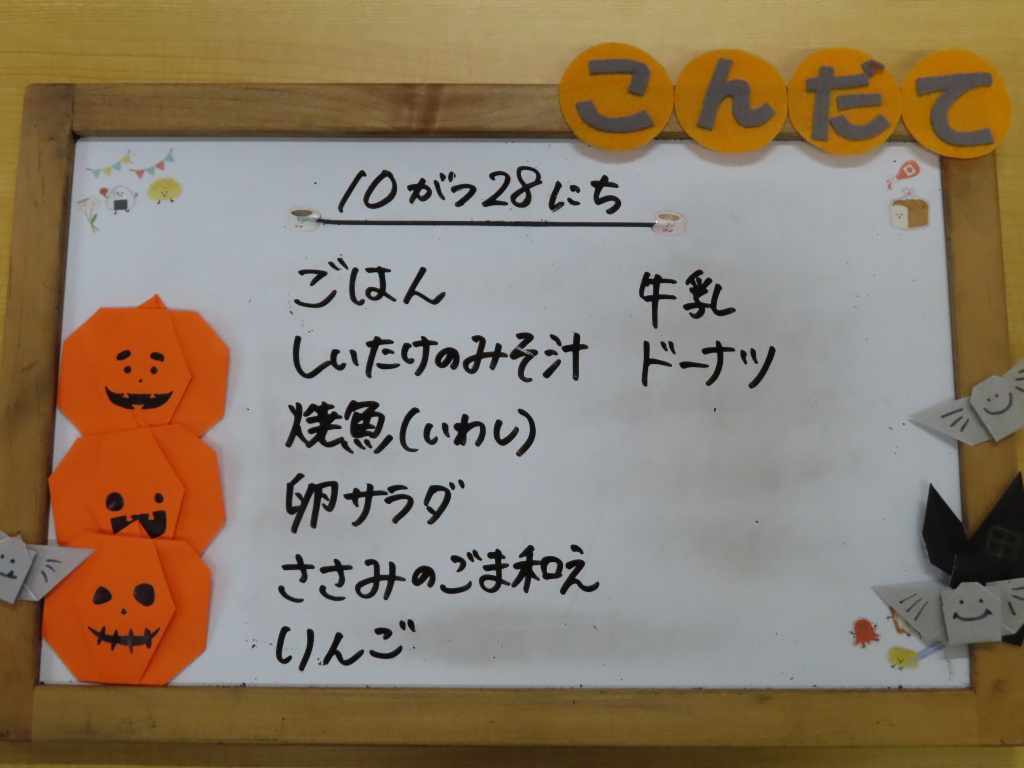 こんだて
10がつ28にち
ごはん
しいたけのみそ汁
焼魚(いわし)
卵サラダ
ささみのごま和え
りんご
牛乳
ドーナツ